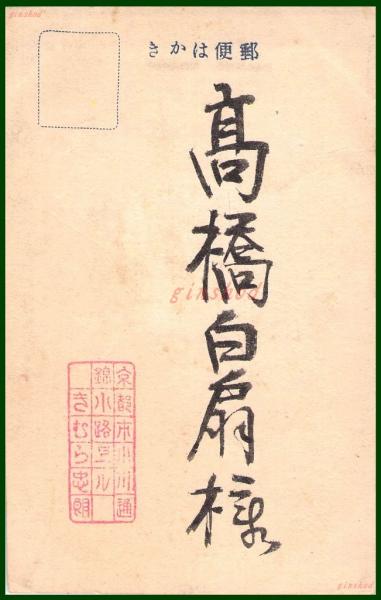 ginshod
郵便はかき
高橋白扇様
ginshod
京都市小川通
錦小路上ル
きむら忠朗
ginshod